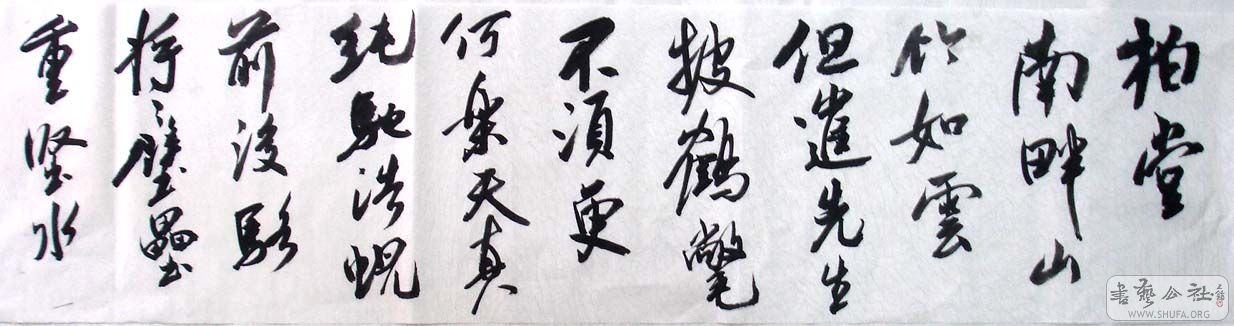 柏堂
南畔山
竹如雲
但進先生
披鶴氅
不須更
何樂天真
純馳浩蜺
前後駱
将々壁壘
重堅水
書藝公社
WWW.SHUFA.ORG